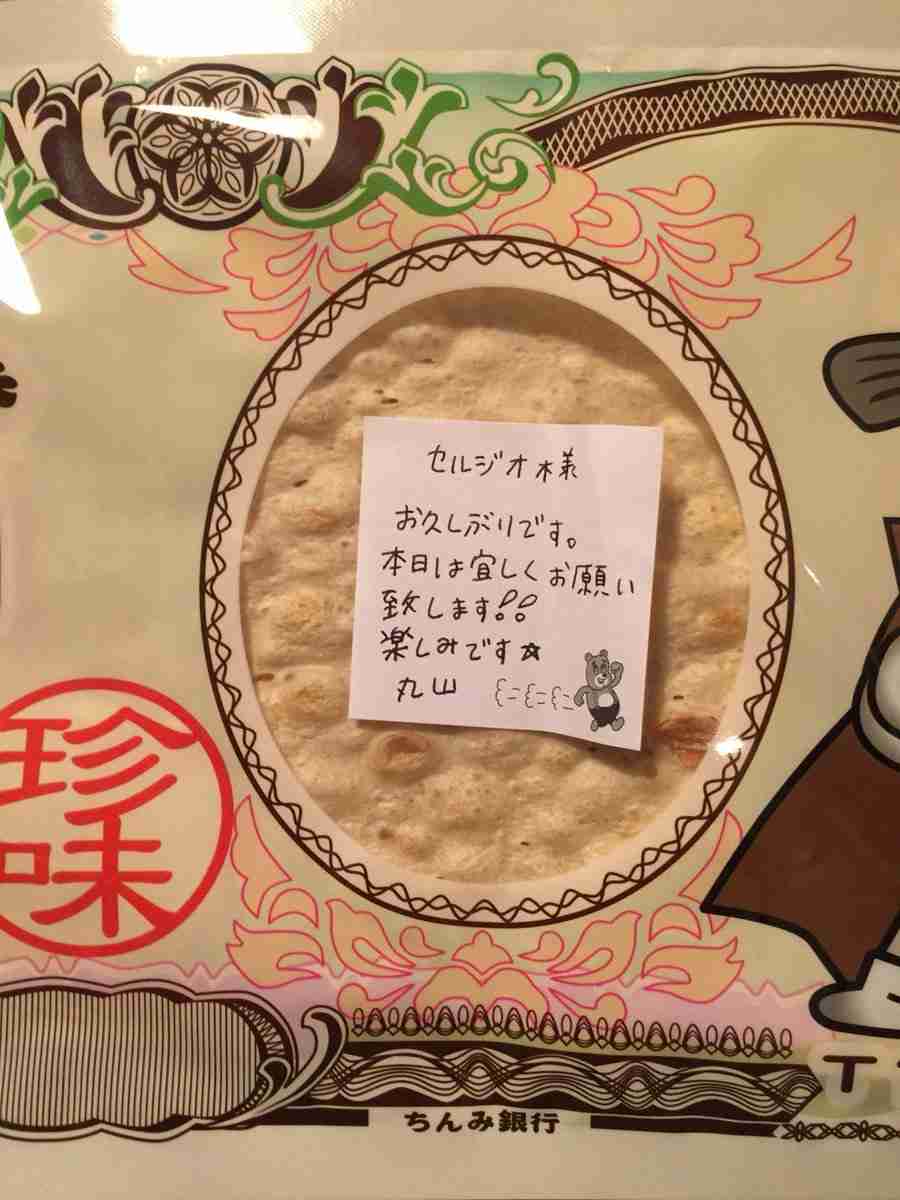 セルジオ様
お久しぶりです。
本日は宜しくお願い
致します!!
楽しみです☆
丸山
珍
味
ちんみ銀行
T